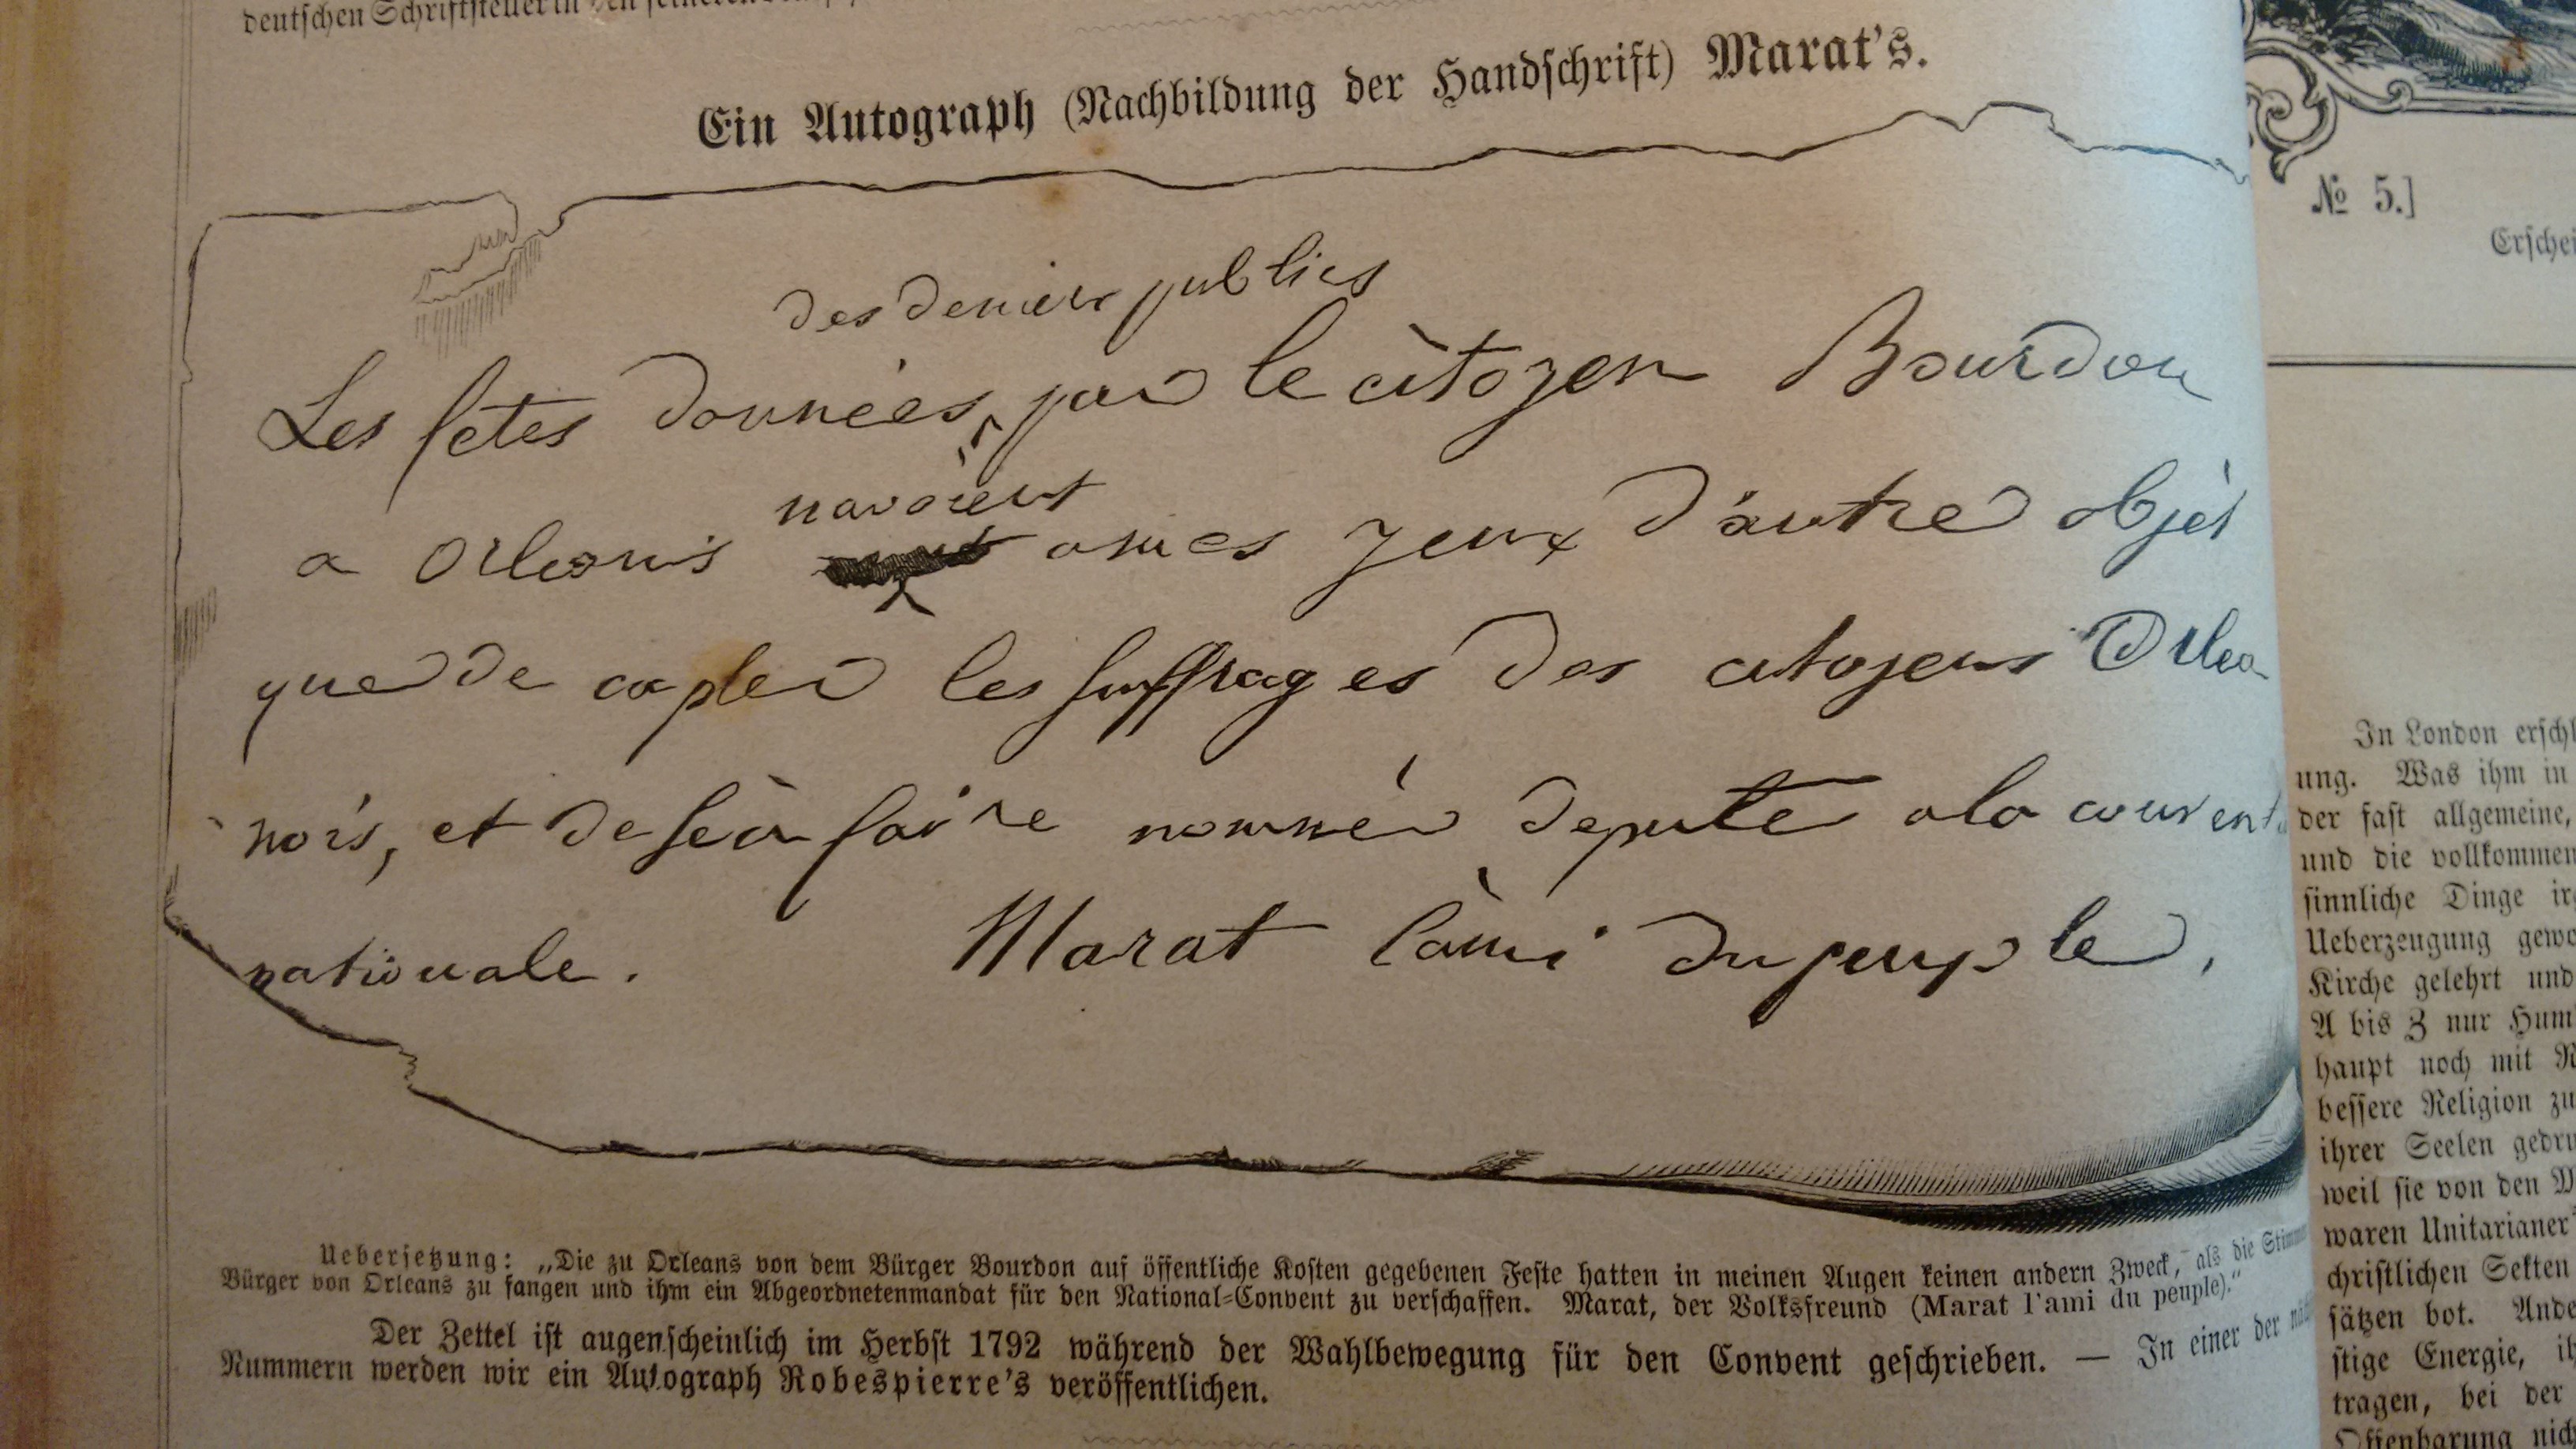 deutschen Schriftsteller in
Ein Autograph (Nachbildung der Handschrift) Marat's.
des denier publics
Les fetes données par le citoyen Bourdon
a Orleans navoient a mes yeux d'autre objet
que de capter les suffrages des citoyens Orlea
nois, et de se faire nommer deputé a la convent
nationale. Marat l'ami du peuple,
Uebersetzung: „Die zu Orleans von dem Bürger Bourdon auf öffentliche Kosten gegebenen Feste hatten in meinen Augen keinen andern Zweck, als die Stimm
Bürger von Orleans zu fangen und ihm ein Abgeordnetenmandat für den National-Convent zu verschaffen. Marat, der Volksfreund (Marat l'ami du peuple)."
Der Zettel ist augenscheinlich im Herbst 1792 während der Wahlbewegung für den Convent geschrieben. — In einer der
Nummern werden wir ein Autograph Robespierre's veröffentlichen.
№ 5.]
Erschei
In London erschi
ung. Was ihm in
der fast allgemeine,
und die vollkommen
sinnliche Dinge ir
Ueberzeugung gewo
Kirche gelehrt und
A bis Z nur Hum
haupt noch mit R
bessere Religion zu
ihrer Seelen gedru
weil sie von den W
waren Unitarianer
christlichen Sekten
sätzen bot. Ande
stige Energie, ih
tragen, bei der
Offenbarung nich